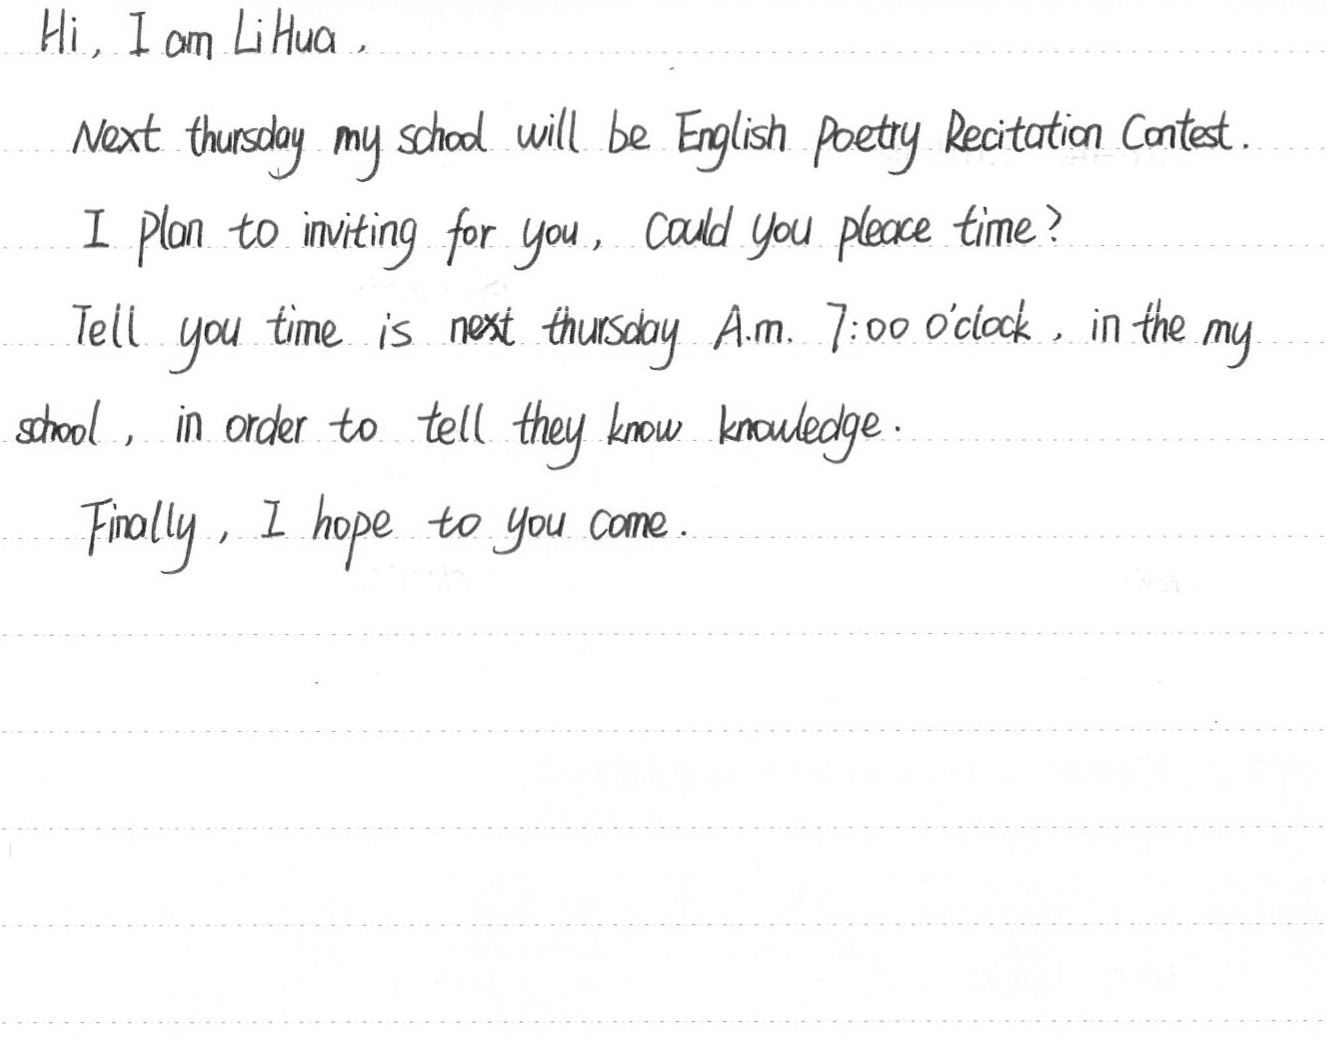 Hi, I am Li Hua.
Next thursday my school will be English Poetry Recitation Contest.
I plan to inviting for you, Could you pleace time?
Tell you time is next thursday A.m. 7:00 o'clock, in the my
school, in order to tell they know knowledge.
Finally, I hope to you come.